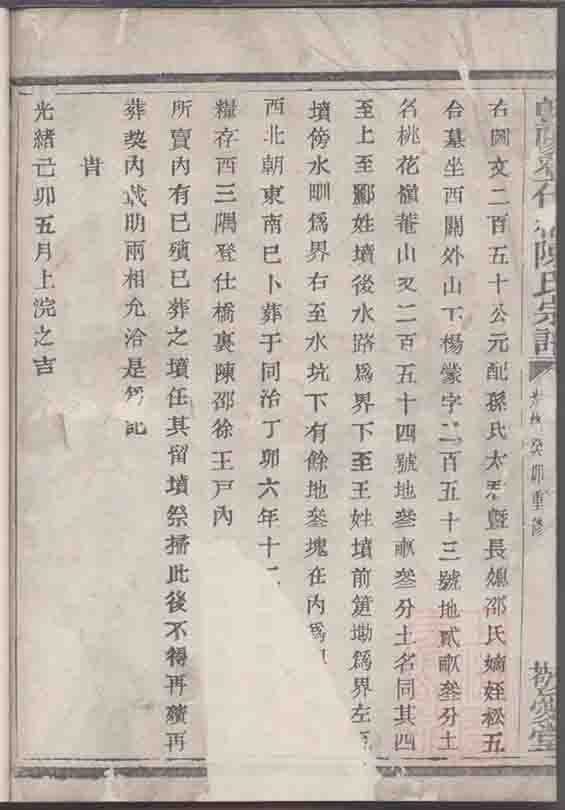 陳氏宗譜
癸卯重修
敬愛堂
右圖文二百五十公元配孫氏太君暨長媳邵氏嫡姪松五
台墓坐西關外山下楊黨字二百五十三號地貳畝叁分土
名桃花嶺菴山又二百五十四號地叁畝叁分土名同其四
至上至鄒姓墳後水路爲界下至王姓墳前筻塝爲界左至
墳傍水圳爲界右至水坑下有餘地叁塊在內爲
西北朝東南已卜葬于同治丁卯六年十二
糧存西三隅登仕橋裏陳邵徐王戸內
所賣內有已殯已葬之墳任其留墳祭掃此後不得再殯再
葬契內載明兩相允洽是爲記
旹
光緒己卯五月上浣之吉